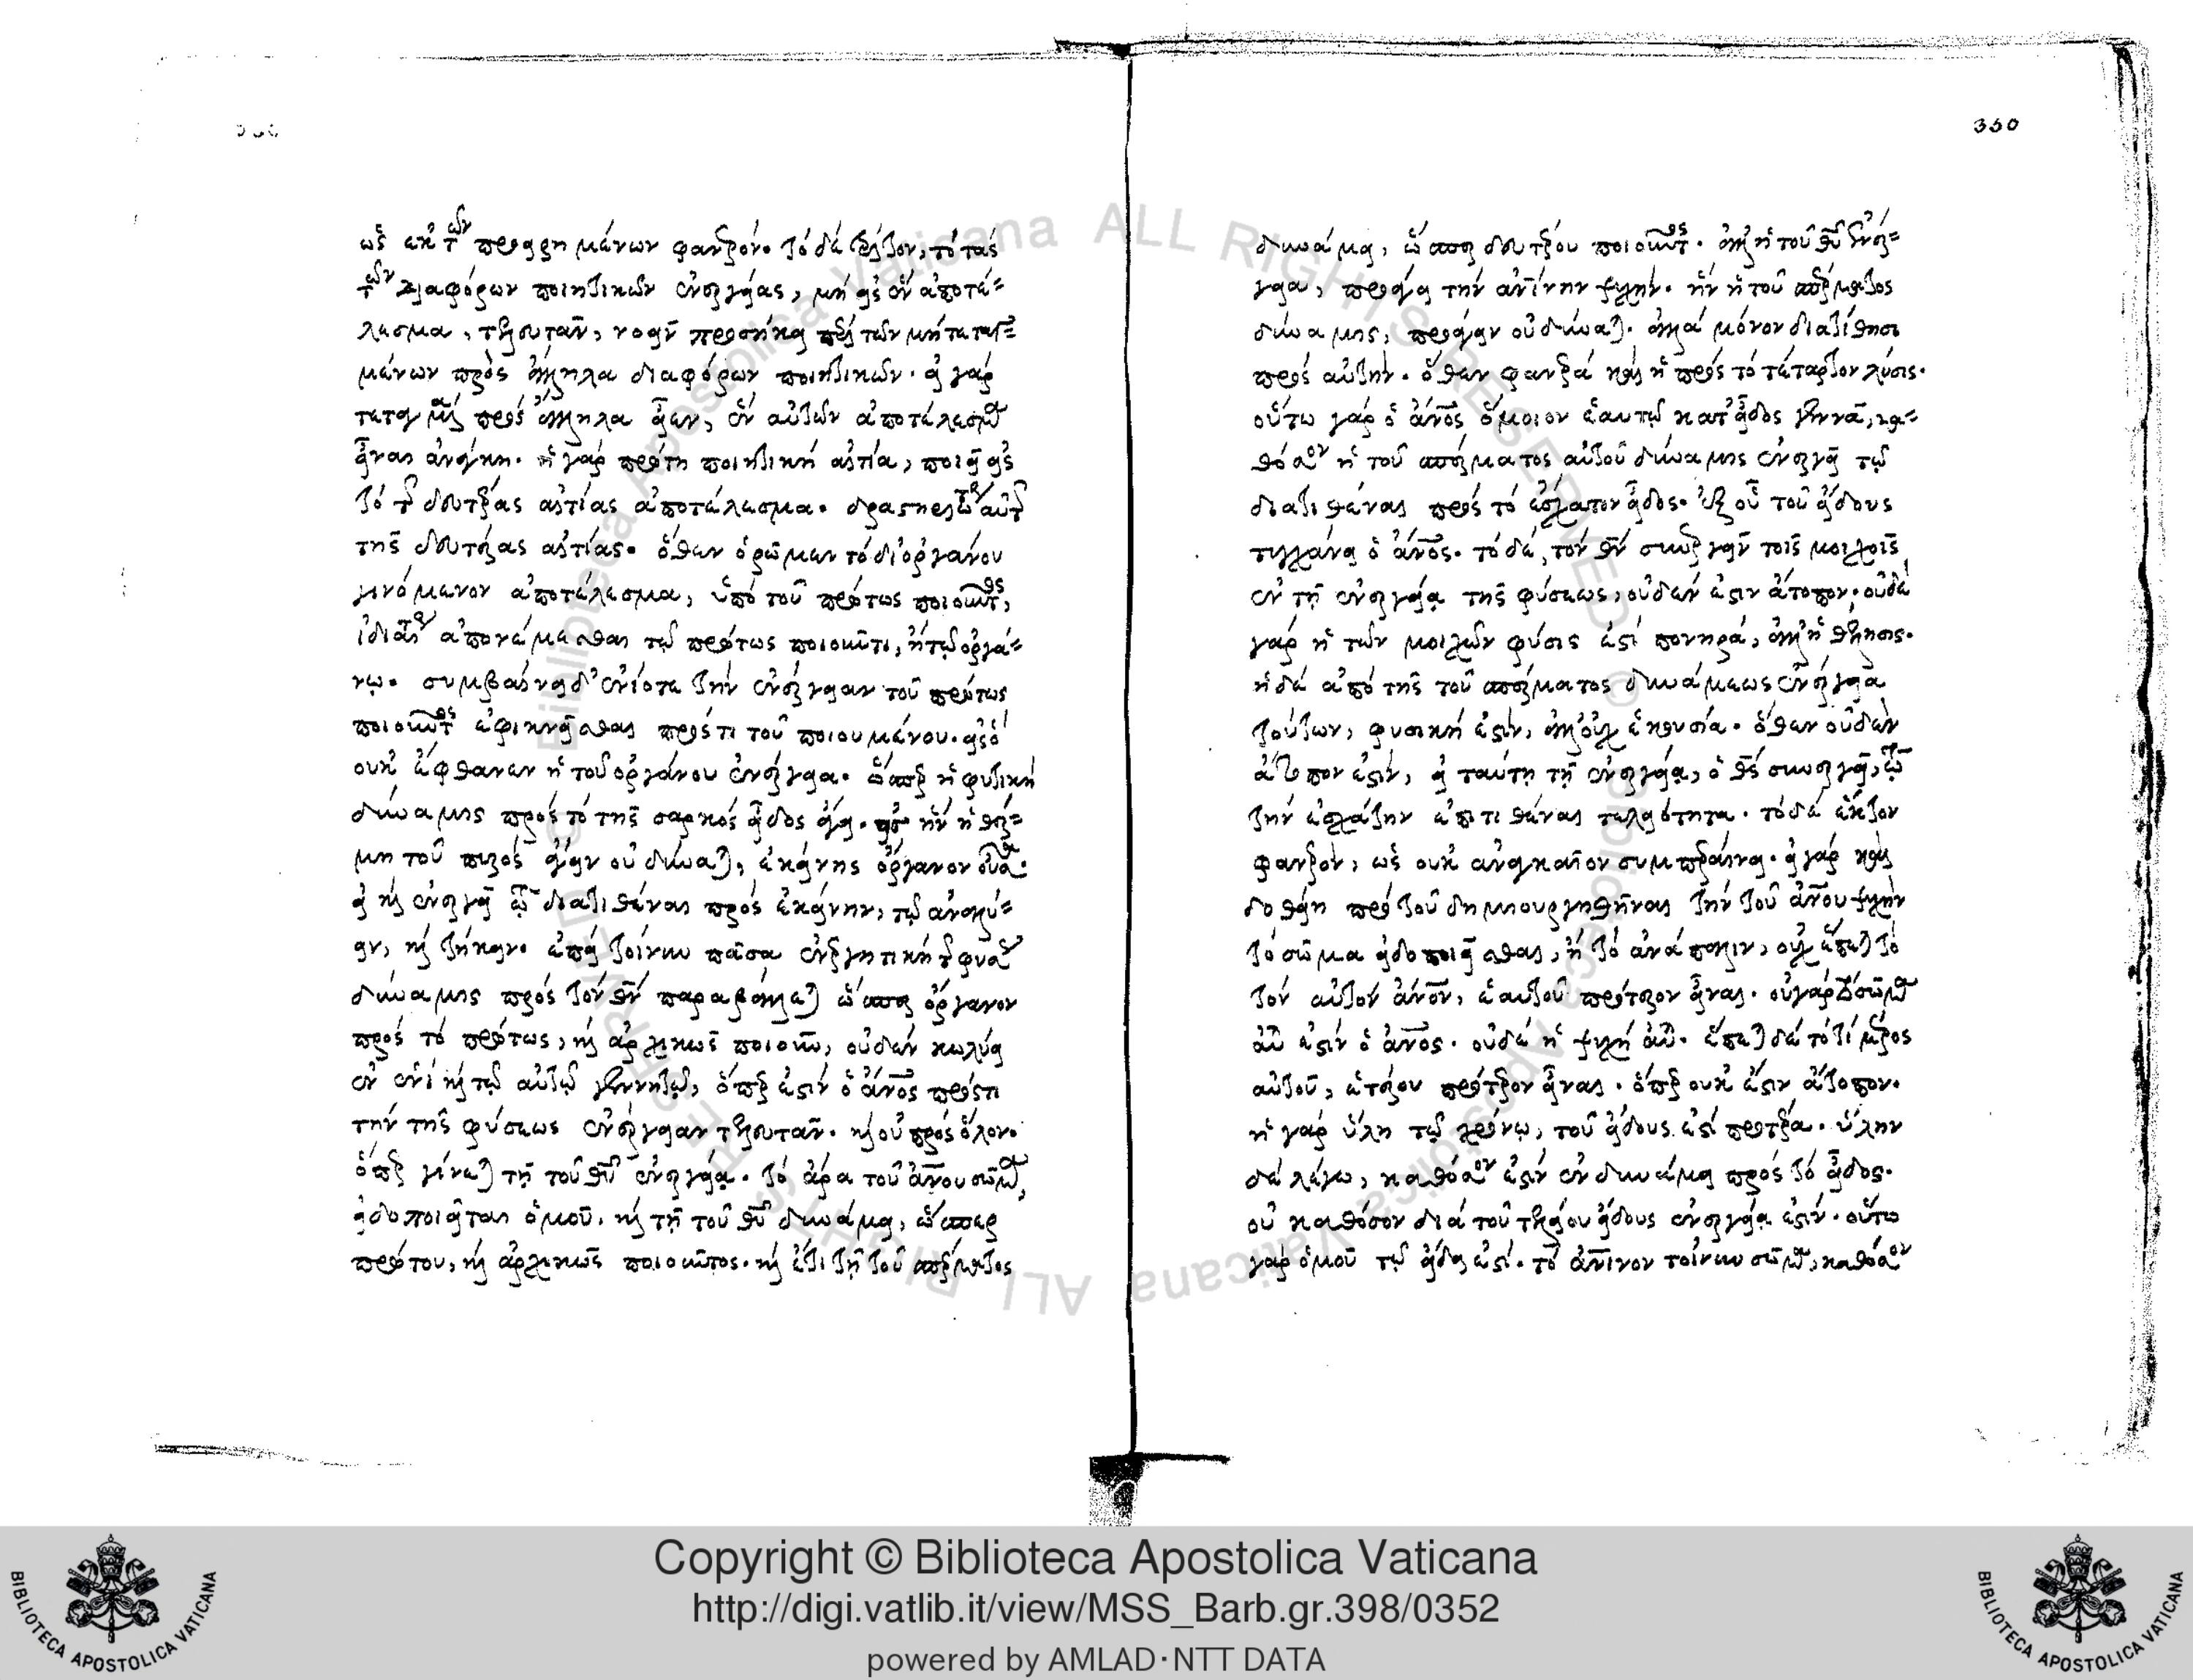 350
ὡς ἐκ τῶν προειρημένων φανερόν. τὸ δὲ τρίτον, τὸ τὰς
τῶν διαφόρων ποιητικῶν ἐνεργείας, μὴ εἰς ἓν ἀποτέ=
λεσμα, τελευτᾶν, νοεῖν προσήκει περὶ τῶν μὴ τεταγ=
μένων πρὸς ἄλληλα διαφόρων ποιητικῶν. εἰ γὰρ
τεταγμένα πρὸς ἄλληλα εἶεν, ἓν αὐτῶν ἀποτέλεσμα
εἶναι ἀνάγκη. ἡ γὰρ πρώτη ποιητικὴ αἰτία, ποιεῖ εἰς
τὸ τῆς δευτέρας αἰτίας ἀποτέλεσμα. δραστικώτερον αὐτῆς
τῆς δευτέρας αἰτίας. ὅθεν ὁρῶμεν τὸ δι' ὀργάνου
γινόμενον ἀποτέλεσμα, ὑπὸ τοῦ πρώτως ποιοῦντος,
ἰδιαίτερον ἀπονέμεσθαι τῷ πρώτως ποιοῦντι, ἢ τῷ ὀργά=
νῳ. συμβαίνει δ' ἐνίοτε τὴν ἐνέργειαν τοῦ πρώτως
ποιοῦντος ἐφικνεῖσθαι πρός τι τοῦ ποιουμένου. εἰς ὃ
οὐκ ἔφθανεν ἡ τοῦ ὀργάνου ἐνέργεια. ὥσπερ ἡ φυτικὴ
δύναμις πρὸς τὸ τῆς σαρκὸς εἶδος ἄγει. εἰς ἣν ἡ θέρ=
μη τοῦ πυρὸς ἄγειν οὐ δύναται, ἐκείνης ὄργανον οὖσα.
εἰ καὶ ἐνεργεῖ τῷ διατιθέναι πρὸς ἐκείνην, τῷ ἀναλύ=
ειν, καὶ τήκειν. ἐπεὶ τοίνυν πᾶσα ἐνεργητικὴ τῆς φύσεως
δύναμις πρὸς τὸν θν παραβάλλεται ὥσπερ ὄργανον
πρὸς τὸ πρώτως, καὶ ἀρχικῶς ποιοῦν, οὐδὲν κωλύει
ἐν ἑνὶ καὶ τῷ αὐτῷ γεννητῷ, ὅπερ ἐστὶν ὁ ἄνος πρός τι
τὴν τῆς φύσεως ἐνέργειαν τελευτᾶν. καὶ οὐ πρὸς ὅλον.
ὅπερ γίνεται τῇ τοῦ θυ ἐνεργείᾳ. τὸ ἄρα τοῦ ἀνου σῶμα,
εἰδοποιεῖται ὁμοῦ, καὶ τῇ τοῦ θυ δυνάμει, ὥσπερ
πρώτου, καὶ ἀρχικῶς ποιοῦντος. καὶ ἔτι τῇ τοῦ σπέρματος
350
δυνάμει, ὥσπερ δευτέρου ποιοῦντος. ἀλλ' ἡ τοῦ θυ ἐνέρ=
γεια, προάγει τὴν ἀνίνην ψυχήν. ἣν ἡ τοῦ σπέρματος
δύναμις, προάγειν οὐ δύναται. ἀλλὰ μόνον διατίθησι
πρὸς αὐτήν. ὅθεν φανερὰ καὶ ἡ πρὸς τὸ τέταρτον λύσις.
οὕτω γὰρ ὁ ἄνος ὅμοιον ἑαυτῷ κατ' εἶδος γεννᾷ, κα=
θόσον ἡ τοῦ σπέρματος αὐτοῦ δύναμις ἐνεργεῖ τῷ
διατιθέναι πρὸς τὸ ἔσχατον εἶδος. ἐξ οὗ τοῦ εἴδους
τυγχάνει ὁ ἄνος. τὸ δὲ, τὸν θν συνεργεῖν τοῖς μοιχοῖς
ἐν τῇ ἐνεργείᾳ τῆς φύσεως, οὐδέν ἐστιν ἄτοπον. οὐδὲ
γὰρ ἡ τῶν μοιχῶν φύσις ἐστὶ πονηρά, ἀλλ' ἡ θέλησις.
ἡ δὲ ἀπὸ τῆς τοῦ σπέρματος δυνάμεως ἐνέργεια
τούτων, φυσική ἐστιν, ἀλλ' οὐχ ἑκουσία. ὅθεν οὐδὲν
ἄτοπον ἐστίν, εἰ ταύτῃ τῇ ἐνεργείᾳ, ὁ θς συνεργεῖ, τῷ
τὴν ἐσχάτην ἐπιτιθέναι τελειότητα. τὸ δὲ ἕκτον
φανερὸν, ὡς οὐκ ἀναγκαῖον συμπεραίνει. εἰ γὰρ καὶ
δοθείη πρὸ τοῦ δημιουργηθῆναι τὴν τοῦ ἀνου ψυχὴν
τὸ σῶμα εἰδοποιεῖσθαι, ἢ τὸ ἀνάπαλιν, οὐχ ἕπεται τὸ
τὸν αὐτὸν ἄνον, ἑαυτοῦ πρότερον εἶναι. οὐ γὰρ τὸ σῶμα
αὐτοῦ ἐστὶν ὁ ἄνος. οὐδὲ ἡ ψυχὴ αὐτοῦ. ἕπεται δὲ τὸ τὶ μέρος
αὐτοῦ, ἑτέρου πρότερον εἶναι. ὅπερ οὐκ ἔστιν ἄτοπον.
ἡ γὰρ ὕλη τῷ χρόνῳ, τοῦ εἴδους ἐστὶ προτέρα. ὕλην
δὲ λέγω, καθόσον ἐστὶν ἐν δυνάμει πρὸς τὸ εἶδος.
οὐ καθόσον διὰ τοῦ τελείου εἴδους ἐνεργείᾳ ἐστίν. οὕτω
γὰρ ὁμοῦ τῷ εἴδει ἐστί. τὸ ἀνινον τοίνυν σῶμα, καθόσον
Copyright © Biblioteca Apostolica Vaticana
http://digi.vatlib.it/view/MSS_Barb.gr.398/0352
powered by AMLAD·NTT DATA
BIBLIOTECA APOSTOLICA VATICANA
BIBLIOTECA APOSTOLICA VATICANA